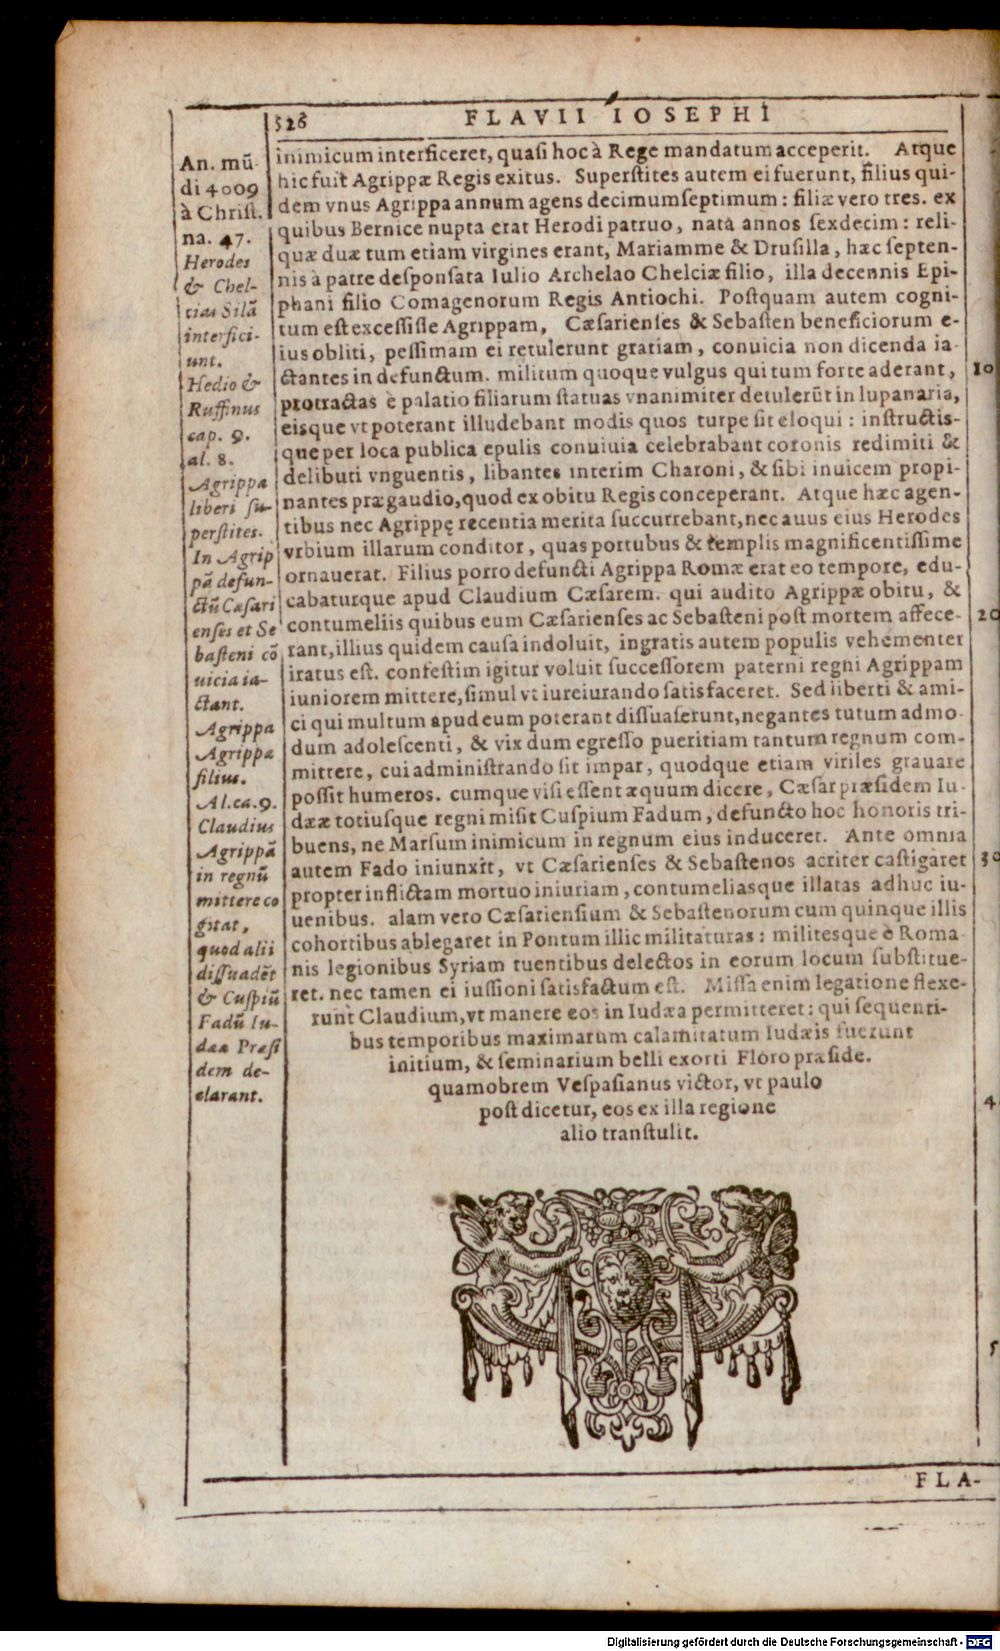 526
FLAVII IOSEPHI
An. mū-
di 4009
à Christ.
na. 47.
Herodes
& Chel-
cias Silā
interfici-
unt.
Hedio &
Ruffinus
cap. 9.
al. 8.
Agrippa
liberi su-
perstites.
In Agrip
pā defun-
ctū Cæsari
enses et Se
basteni cō
uicia ia-
ctant.
Agrippa
Agrippa
filius.
Al. ca. 9.
Claudius
Agrippā
in regnū
mittere co
gitat,
quod alii
dissuadēt
& Cuspiū
Fadū Iu-
dææ Præsi
dem de-
clarant.
inimicum interficeret, quasi hoc à Rege mandatum acceperit. Atque
hic fuit Agrippæ Regis exitus. Superstites autem ei fuerunt, filius qui-
dem vnus Agrippa annum agens decimumseptimum: filiæ vero tres. ex
quibus Bernice nupta erat Herodi patruo, nata annos sexdecim: reli-
quæ duæ tum etiam virgines erant, Mariamme & Drusilla, hæc septen-
nis à patre desponsata Iulio Archelao Chelciæ filio, illa decennis Epi-
phani filio Comagenorum Regis Antiochi. Postquam autem cogni-
tum est excessisse Agrippam, Cæsarienses & Sebasten beneficiorum e-
ius obliti, pessimam ei retulerunt gratiam, conuicia non dicenda ia-
ctantes in defunctum. militum quoque vulgus qui tum forte aderant,
protractas è palatio filiarum statuas vnanimiter detulerūt in lupanaria,
eisque vt poterant illudebant modis quos turpe sit eloqui: instructis-
que per loca publica epulis conuiuia celebrabant coronis redimiti &
delibuti vnguentis, libantes interim Charoni, & sibi inuicem propi-
nantes præ gaudio, quod ex obitu Regis conceperant. Atque hæc agen-
tibus nec Agrippę recentia merita succurrebant, nec auus eius Herodes
vrbium illarum conditor, quas portubus & templis magnificentissime
ornauerat. Filius porro defuncti Agrippa Romæ erat eo tempore, edu-
cabaturque apud Claudium Cæsarem. qui audito Agrippæ obitu, &
contumeliis quibus eum Cæsarienses ac Sebasteni post mortem affece-
rant, illius quidem causa indoluit, ingratis autem populis vehementer
iratus est. confestim igitur voluit successorem paterni regni Agrippam
iuniorem mittere, simul vt iureiurando satisfaceret. Sed liberti & ami-
ci qui multum apud eum poterant dissuaserunt, negantes tutum admo-
dum adolescenti, & vix dum egresso pueritiam tantum regnum com-
mittere, cui administrando sit impar, quodque etiam viriles grauare
possit humeros. cumque visi essent æquum dicere, Cæsar præsidem Iu-
dææ totiusque regni misit Cuspium Fadum, defuncto hoc honoris tri-
buens, ne Marsum inimicum in regnum eius induceret. Ante omnia
autem Fado iniunxit, vt Cæsarienses & Sebastenos acriter castigaret
propter inflictam mortuo iniuriam, contumeliasque illatas adhuc iu-
uenibus. alam vero Cæsariensium & Sebastenorum cum quinque illis
cohortibus ablegaret in Pontum illic militaturas: militesque è Roma-
nis legionibus Syriam tuentibus delectos in eorum locum substitue-
ret. nec tamen ei iussioni satisfactum est. Missa enim legatione flexe-
runt Claudium, vt manere eos in Iudæa permitteret: qui sequenti-
bus temporibus maximarum calamitatum Iudæis fuerunt
initium, & seminarium belli exorti Floro præside.
quamobrem Vespasianus victor, vt paulo
post dicetur, eos ex illa regione
alio transtulit.
10
20
30
4
5
FLA-
Digitalisierung gefördert durch die Deutsche Forschungsgemeinschaft - DFG